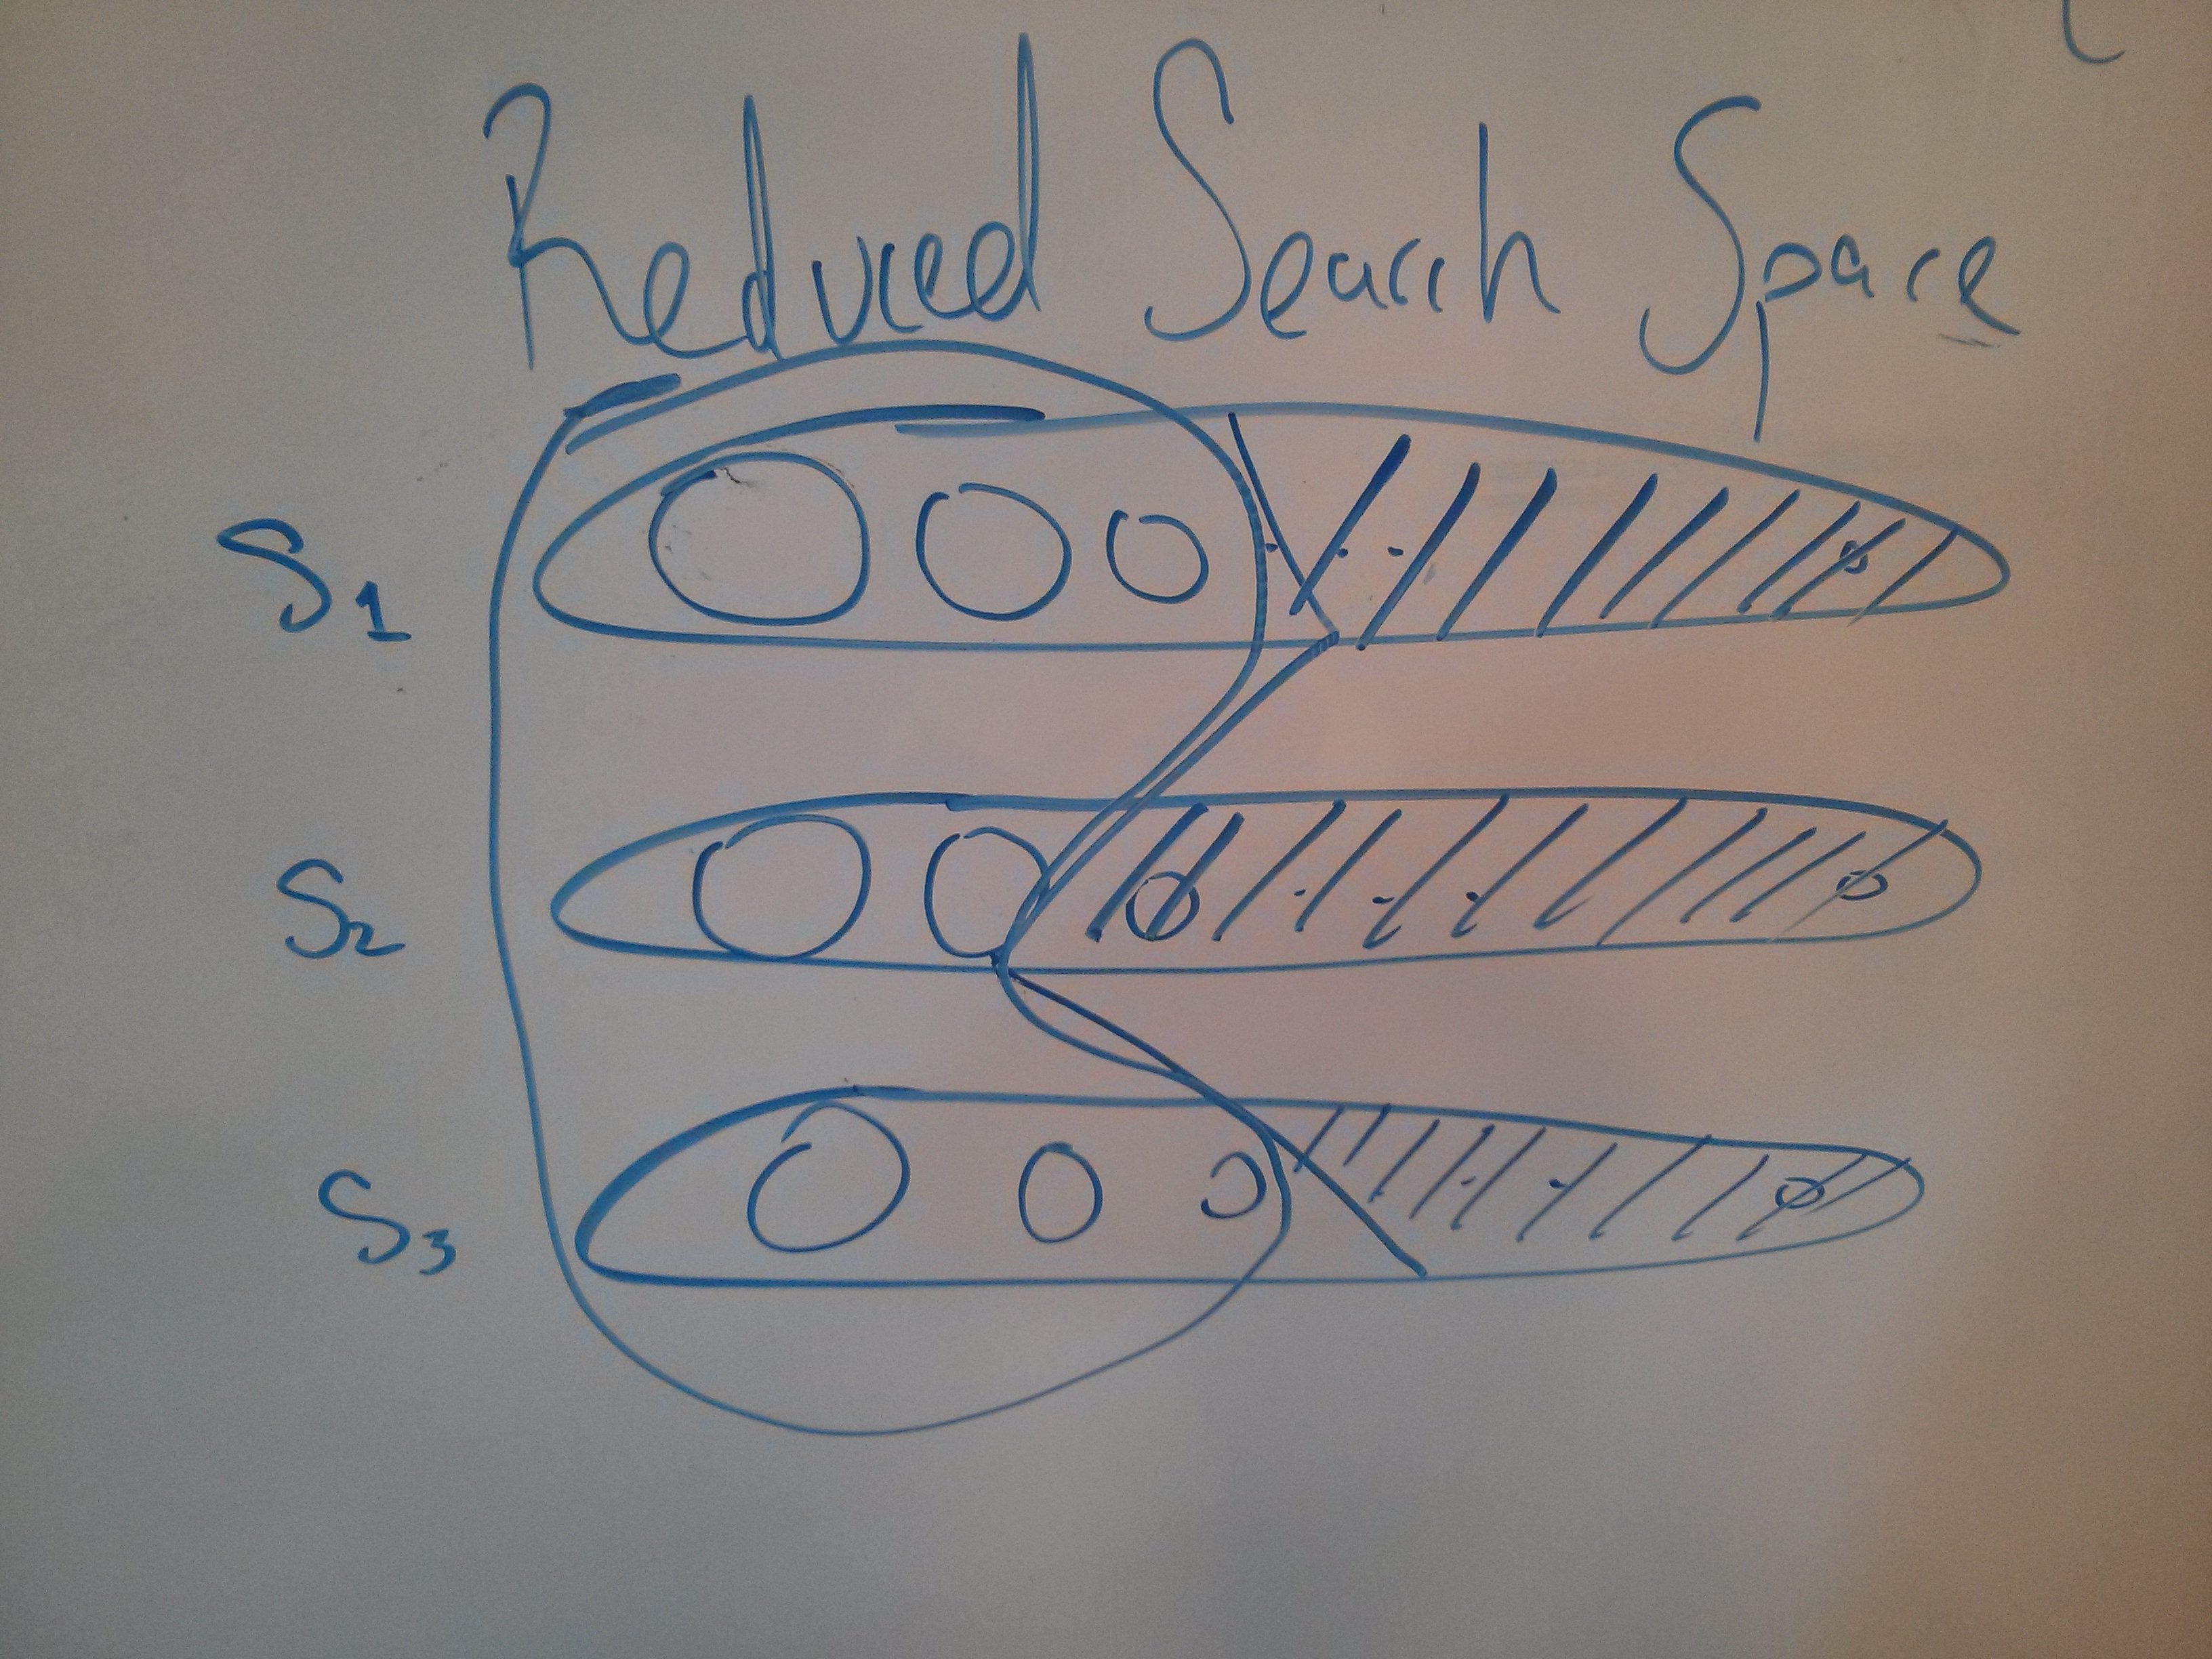 Reduced Search Space
S1
S2
S3